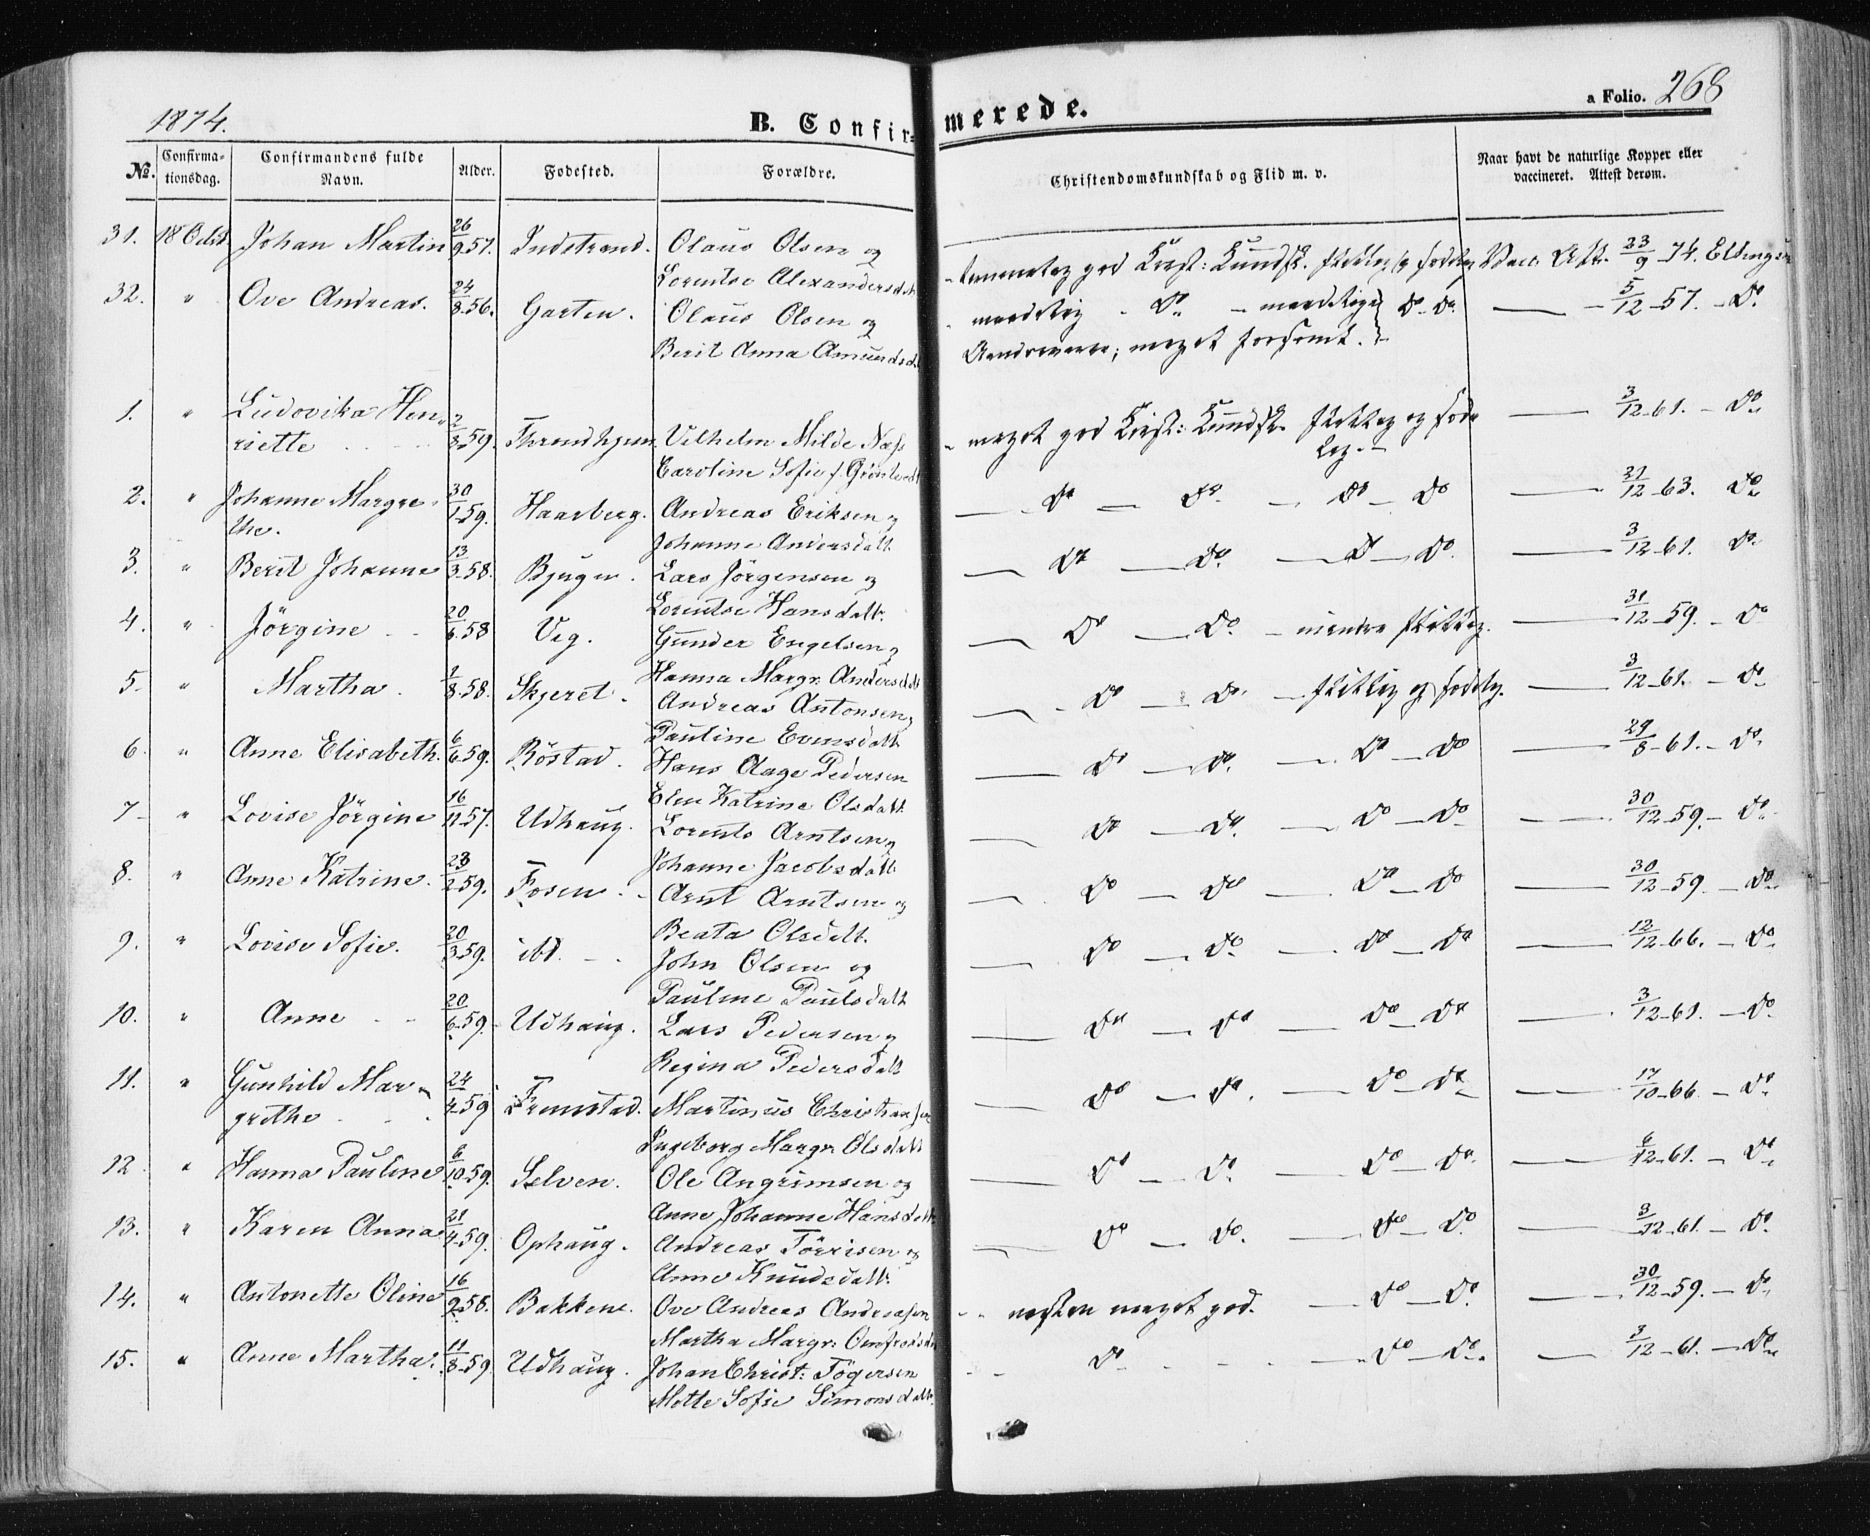 1874.
B. Confirmerede.
a Folio. 268
No. Confirmationsdag. Confirmandens fulde Navn. Alder. Fødested. Forældre. Christendomskundskab og Flid m. v. Naar havt de naturlige Kopper eller vaccineret. Attest derom.
31. 18 Octb. Johan Martin 26/9 57. Indstrand. Olaus Olsen og Lorentse Alexandersdatt. temmelig god Krist: Kundsk. flittig og sædelig Vacc. Att. 23/9 74.
32. " Ove Andreas. 24/8 56. Garten. Olaus Olsen og Berit Anna Amundsd. maadelig - Do - maadelige Do Do — 5/12 57. - Do
meget forsømt.
1. " Ludovika Henriette 2/3 59. Throndhjem. Vilhelm Milde Næss Caroline Sofie f. Grønlund meget god Krist: Kundsk. flittig og sædelig. — 3/12 61. - Do
2. " Johanne Margrethe. 30/1 59. Haarberg. Andreas Eriksen og Johanne Andersdatt. — Do — Do — Do — Do — 31/12 63. Do
3. " Berit Johanne 13/3 58. Bjugn. Lars Jörgensen og Lorentse Hansdatt. — Do — Do — Do — Do — 3/12 61. Do
4. " Jörgine 20/6 58 Veg. Gunder Engelsen og Hanna Margr. Andersdatt — Do — Do - mindre flittig. — 31/12 59. - Do
5. " Martha. 1/8 58. Skjeret. Andreas Antonsen og Pauline Evensdatt. — Do - Do - flittig og sædelig. — 3/12 61. - Do
6. " Anne Elisabeth. 6/6 59. Röstad. Hans Aage Pedersen Elen Katrine Olsdatt. — Do — Do. — Do — Do — 29/8 61. - Do
7 " Lovise Jörgine 16/11 57. Udhaug. Lorents Arntsen og Johanne Jacobsdatt. — Do — Do. — Do — Do — 30/12 59. - Do
8. " Anne Katrine. 23/2 59. Fosen. Arnt Arntsen og Beata Olsdatt. — Do — Do — Do — Do — 30/12 59. - Do
9. " Lovise Sofie. 20/3 59. ibd. John Olsen og Pauline Paulsdatt — Do — Do — Do — Do — 12/12 66. - Do
10. " Anne 20/6 59. Udhaug. Lars Pedersen og Regina Pedersdatt — Do — Do — Do — Do — 3/12 61. - Do
11. " Gunhild Margrethe 24/4 59 Fremstad. Martinus Christiansen Ingeborg Margr. Olsdatt — Do — Do. — Do — Do — 17/10 66. - Do
12. " Hanna Pauline 6/10 59. Selven. Ole Angrimsen og Anne Johanne Hansdatt. Do — Do — Do — Do. — 6/12 61. - Do
13. " Karen Anna 21/4 59. Ophaug. Andreas Törrisen og Anne Knudsdatt. — Do — Do. — Do — Do. — 3/12 61. - Do
14. " Antonette Oline 16/9 58. Bakken. Ove Andreas Andreasen Martha Margr: - - næsten meget god. — Do — Do. — 30/12 59. - Do
15. " Anne Martha. 11/8 59. Udhaug. Johan Christ: Tögersen Mette Sofie Simonsdatt. - - Do - - — Do — Do. — 3/12 61. - Do